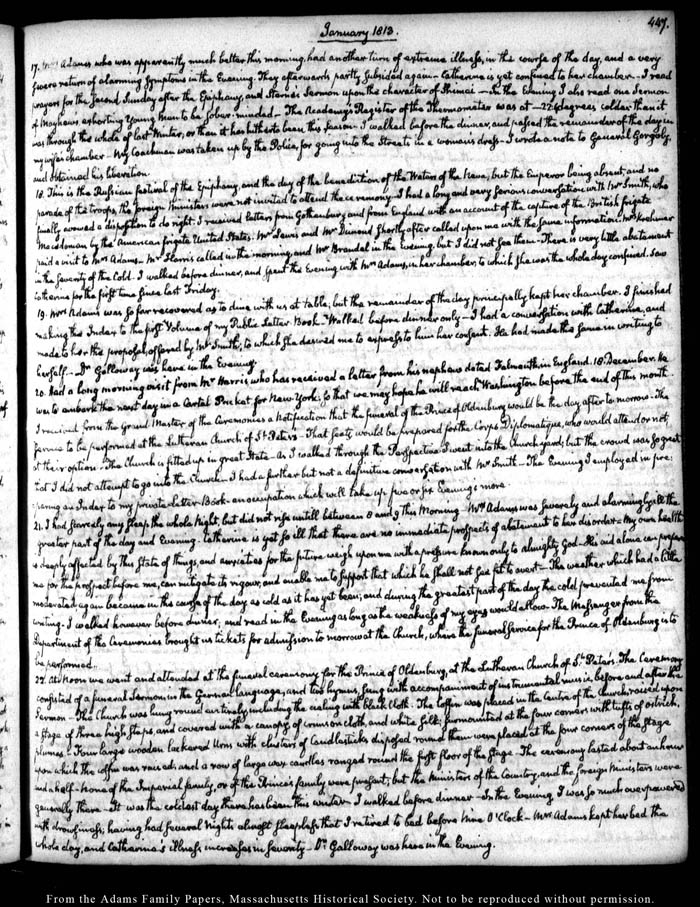 447.
January 1813.
17. Mrs Adams who was apparently much better this morning, had another turn of extreme illness, in the course of the day, and a very
severe return of alarming symptoms in the Evening. They afterwards partly subsided again — Catherine is yet confined to her chamber. — I read
prayers for the second Sunday after the Epiphany, and Sterne's Sermon upon the character of Shimei — In the Evening I also read one Sermon
of Mayhew's exhorting Young Men to be sober-minded — The Academy's Register of the Thermometer was at — 22 degrees colder than it
was through the whole of last Winter, or than it has hitherto been this season. I walked before the dinner, and passed the remainder of the day in
my wife's chamber — My Coachman was taken up by the Police, for going into the Streets in a woman's dress — I wrote a note to General Gorgoly,
and obtained his liberation.
18. This is the Russian festival of the Epiphany, and the day of the benediction of the Waters of the Neva, but the Emperor being absent, and no
parade of the troops, the foreign Ministers were not invited to attend the ceremony. I had a long and very serious conversation with Mr Smith, who
finally avowed a disposition to do right. I received letters from Gothenburg and from England with an account of the capture of the British frigate
Macedonian by the American frigate United States. Mr Lewis and Mr Dimond shortly after called upon me with the same information. Mrs Krehmer
paid a visit to Mrs Adams. Mr Norris called in the morning, and Mr Brandel in the Evening, but I did not see them — There is very little abatement
in the severity of the Cold. I walked before dinner, and spent the Evening with Mrs Adams, in her chamber, to which she was the whole day confined. Saw
Catherine for the first time since last Friday.
19. Mrs Adams was so far recovered as to dine with us at table; but the remainder of the day principally kept her chamber. I finished
making the Index to the first Volume of my Public Letter-Book. Walked before dinner only — I had a conversation with Catherine, and
made to her the proposal, offered by Mr Smith; to which she desired me to express to him her consent. He had made the same in writing to
herself. — Dr Galloway was here in the Evening.
20. Had a long morning visit from Mr Harris, who has received a letter from his nephew dated Falmouth, in England. 18. December. He
was to embark the next day in a Cartel Packet for New-York; so that we may hope he will reach Washington before the end of this month.
I received from the Grand Master of the Ceremonies a Notification that the funeral of the Prince of Oldenburg would be the day after to-morrow. The
service to be performed at the Lutheran Church of St Peter's — That seats would be prepared for the Corps Diplomatique, who would attend or not,
at their option. The Church is fitted up in great State — As I walked through the Perspective I went into the Church yard; but the crowd was so great
that I did not attempt to go into the Church — I had a further but not a definitive conversation with Mr Smith — The Evening I employed in pre-
paring an Index to my private-letter-Book — an occupation which will take up five or six Evenings more.
21. I had scarcely any sleep the whole Night, but did not rise untill between 8 and 9 this Morning — Mrs Adams was severely and alarmingly ill the
greater part of the day and Evening. Catherine is yet so ill that there are no immediate prospects of abatement to her disorder — My own health
is deeply affected by this State of things, and anxieties for the future weigh upon me with a pressure known only to almighty God — His aid alone can prepare
me for the prospect before me, can mitigate its rigour, and enable me to support that which he shall not see fit to avert — The weather which had a little
moderated again became in the course of the day as cold as it has yet been; and during the greatest part of the day the cold prevented me from
writing. I walked however before dinner, and read in the Evening as long as the weakness of my eyes would allow. The Messenger from the
Department of the Ceremonies brought us tickets for admission to morrow at the Church, where the funeral service for the Prince of Oldenburg is to
be performed.
22. At Noon we went and attended at the funeral ceremony for the Prince of Oldenburg, at the Lutheran Church of St Peter's. The Ceremony
consisted of a funeral Sermon in the German language, and two hymns, sung with accompaniment of instrumental music, before and after the
Sermon — The Church was hung round entirely, including the ceiling with black Cloth. The coffin was placed in the Centre of the Church raised upon
a Stage of three high steps, and covered with a canopy of crimson cloth, and white silk: surmounted at the four corners with tufts of ostrich,
plumes — Four large wooden lackered Urns with clusters of Candlesticks disposed round them were placed at the four corners of the Stage
upon which the coffin was raised: and a row of large wax candles ranged round the first floor of the Stage — The ceremony lasted about an hour
and a half — None of the Imperial family, or of the Prince's family were present; but the Ministers of the Country, and the foreign Ministers were
generally there — It was the coldest day there has been this winter — I walked before dinner — In the Evening I was so much overpowered
with drowsiness, having had several Nights almost sleepless, that I retired to bed before Nine O'Clock — Mrs Adams kept her bed the
whole day, and Catharine's illness increases in severity — Dr Galloway was here in the Evening.
From the Adams Family Papers, Massachusetts Historical Society. Not to be reproduced without permission.